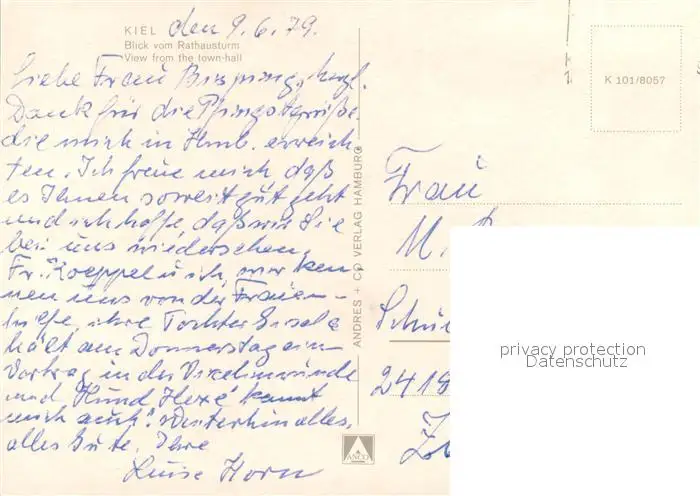 KIEL den 9.6.79.
Blick vom Rathausturm
View from the town-hall
Liebe Frau Büsping, herzl.
Dank für die Pfingstgrüße,
die mich in Hmb. erreich-
ten. Ich freue mich, daß
es Ihnen soweit gut geht
und ich hoffe, daß wir Sie
bei uns wiedersehen.
Fr. Koeppel u. ich, wir ken-
nen uns von der Frauen-
hilfe, ihre Tochter Gisela
hält am Donnerstag ein-
Vortrag in der Vicelinmünde
und Hund "Hexe" kennt
mich auch! Weiterhin alles,
alles Gute, Ihre
Luise Horn
ANDRES + CO VERLAG HAMBURG
ANCO
K 101/8057
Frau
M.
2418
privacy protection
Datenschutz